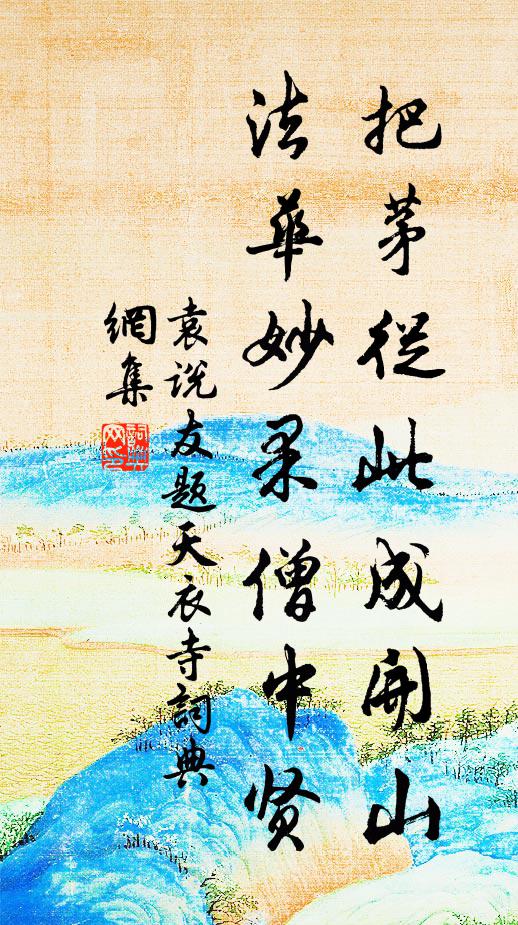 把茅從此成開山
法華妙果僧中贤
袁説友題天衣寺詞典
網集